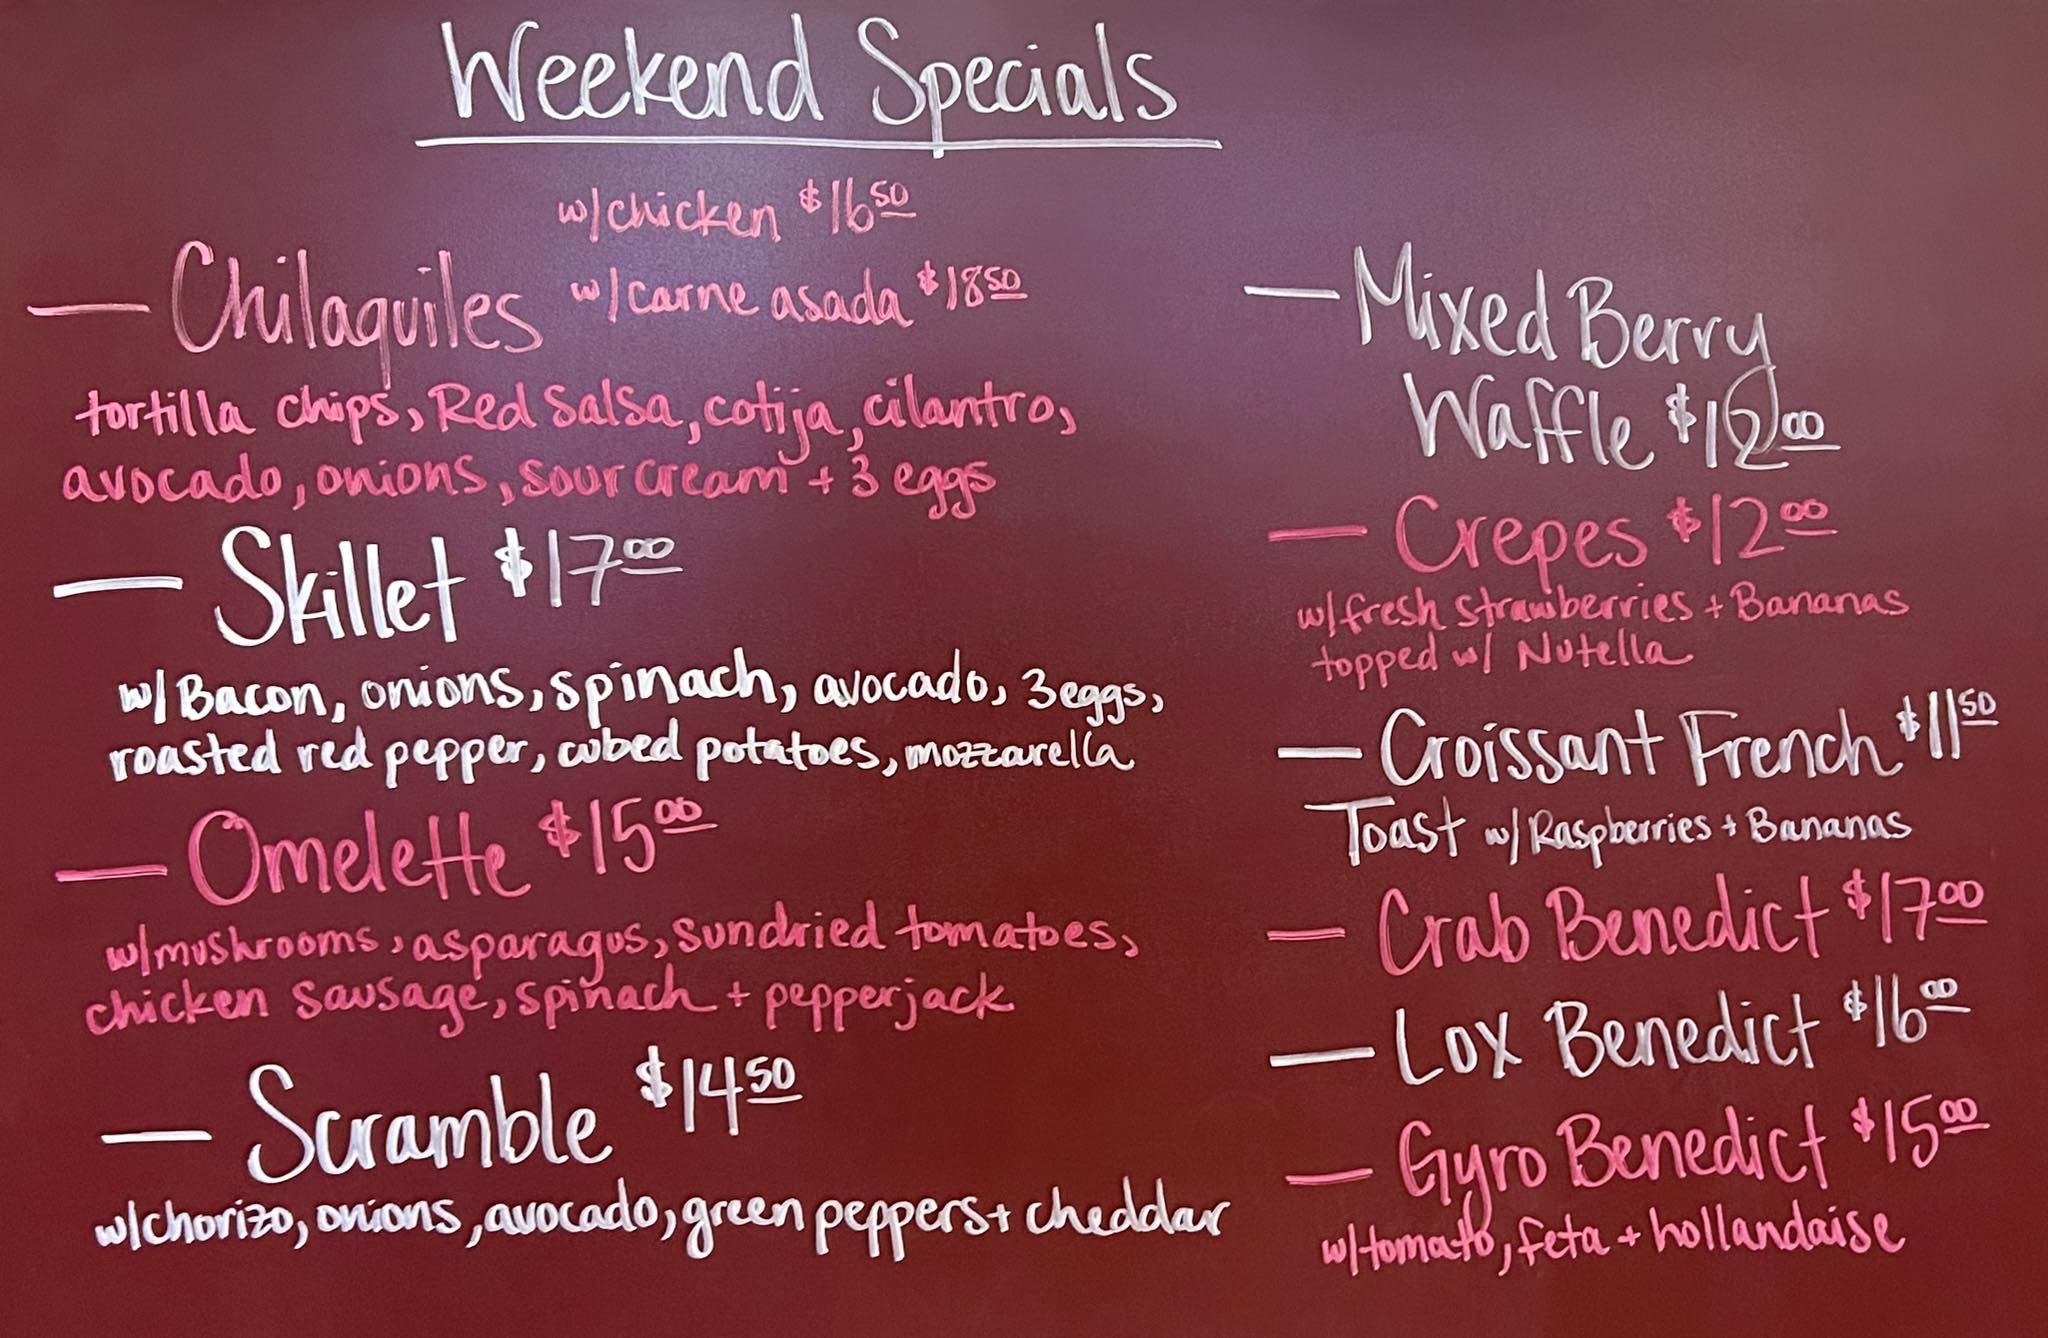 Weekend Specials
w/chicken $16.50
— Chilaquiles w/carne asada $18.50
tortilla chips, Red Salsa, cotija, cilantro,
avocado, onions, sour cream + 3 eggs
— Skillet $17.00
w/Bacon, onions, spinach, avocado, 3 eggs,
roasted red pepper, cubed potatoes, mozzarella
— Omelette $15.00
w/mushrooms, asparagus, sundried tomatoes,
chicken sausage, spinach + pepperjack
— Scramble $14.50
w/chorizo, onions, avocado, green peppers + cheddar
— Mixed Berry
Waffle $12.00
— Crepes $12.00
w/fresh strawberries + Bananas
topped w/ Nutella
— Croissant French $11.50
Toast w/Raspberries + Bananas
— Crab Benedict $17.00
— Lox Benedict $16.00
— Gyro Benedict $15.00
w/tomato, feta + hollandaise